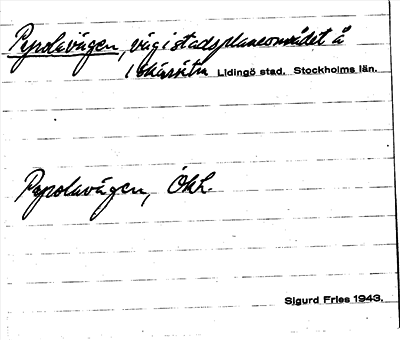 Pepolavägen, väg i stadsplaneområdet å
Lidingö stad. Stockholms län.
Pepolavägen, ÖhL.
Sigurd Fries 1943.